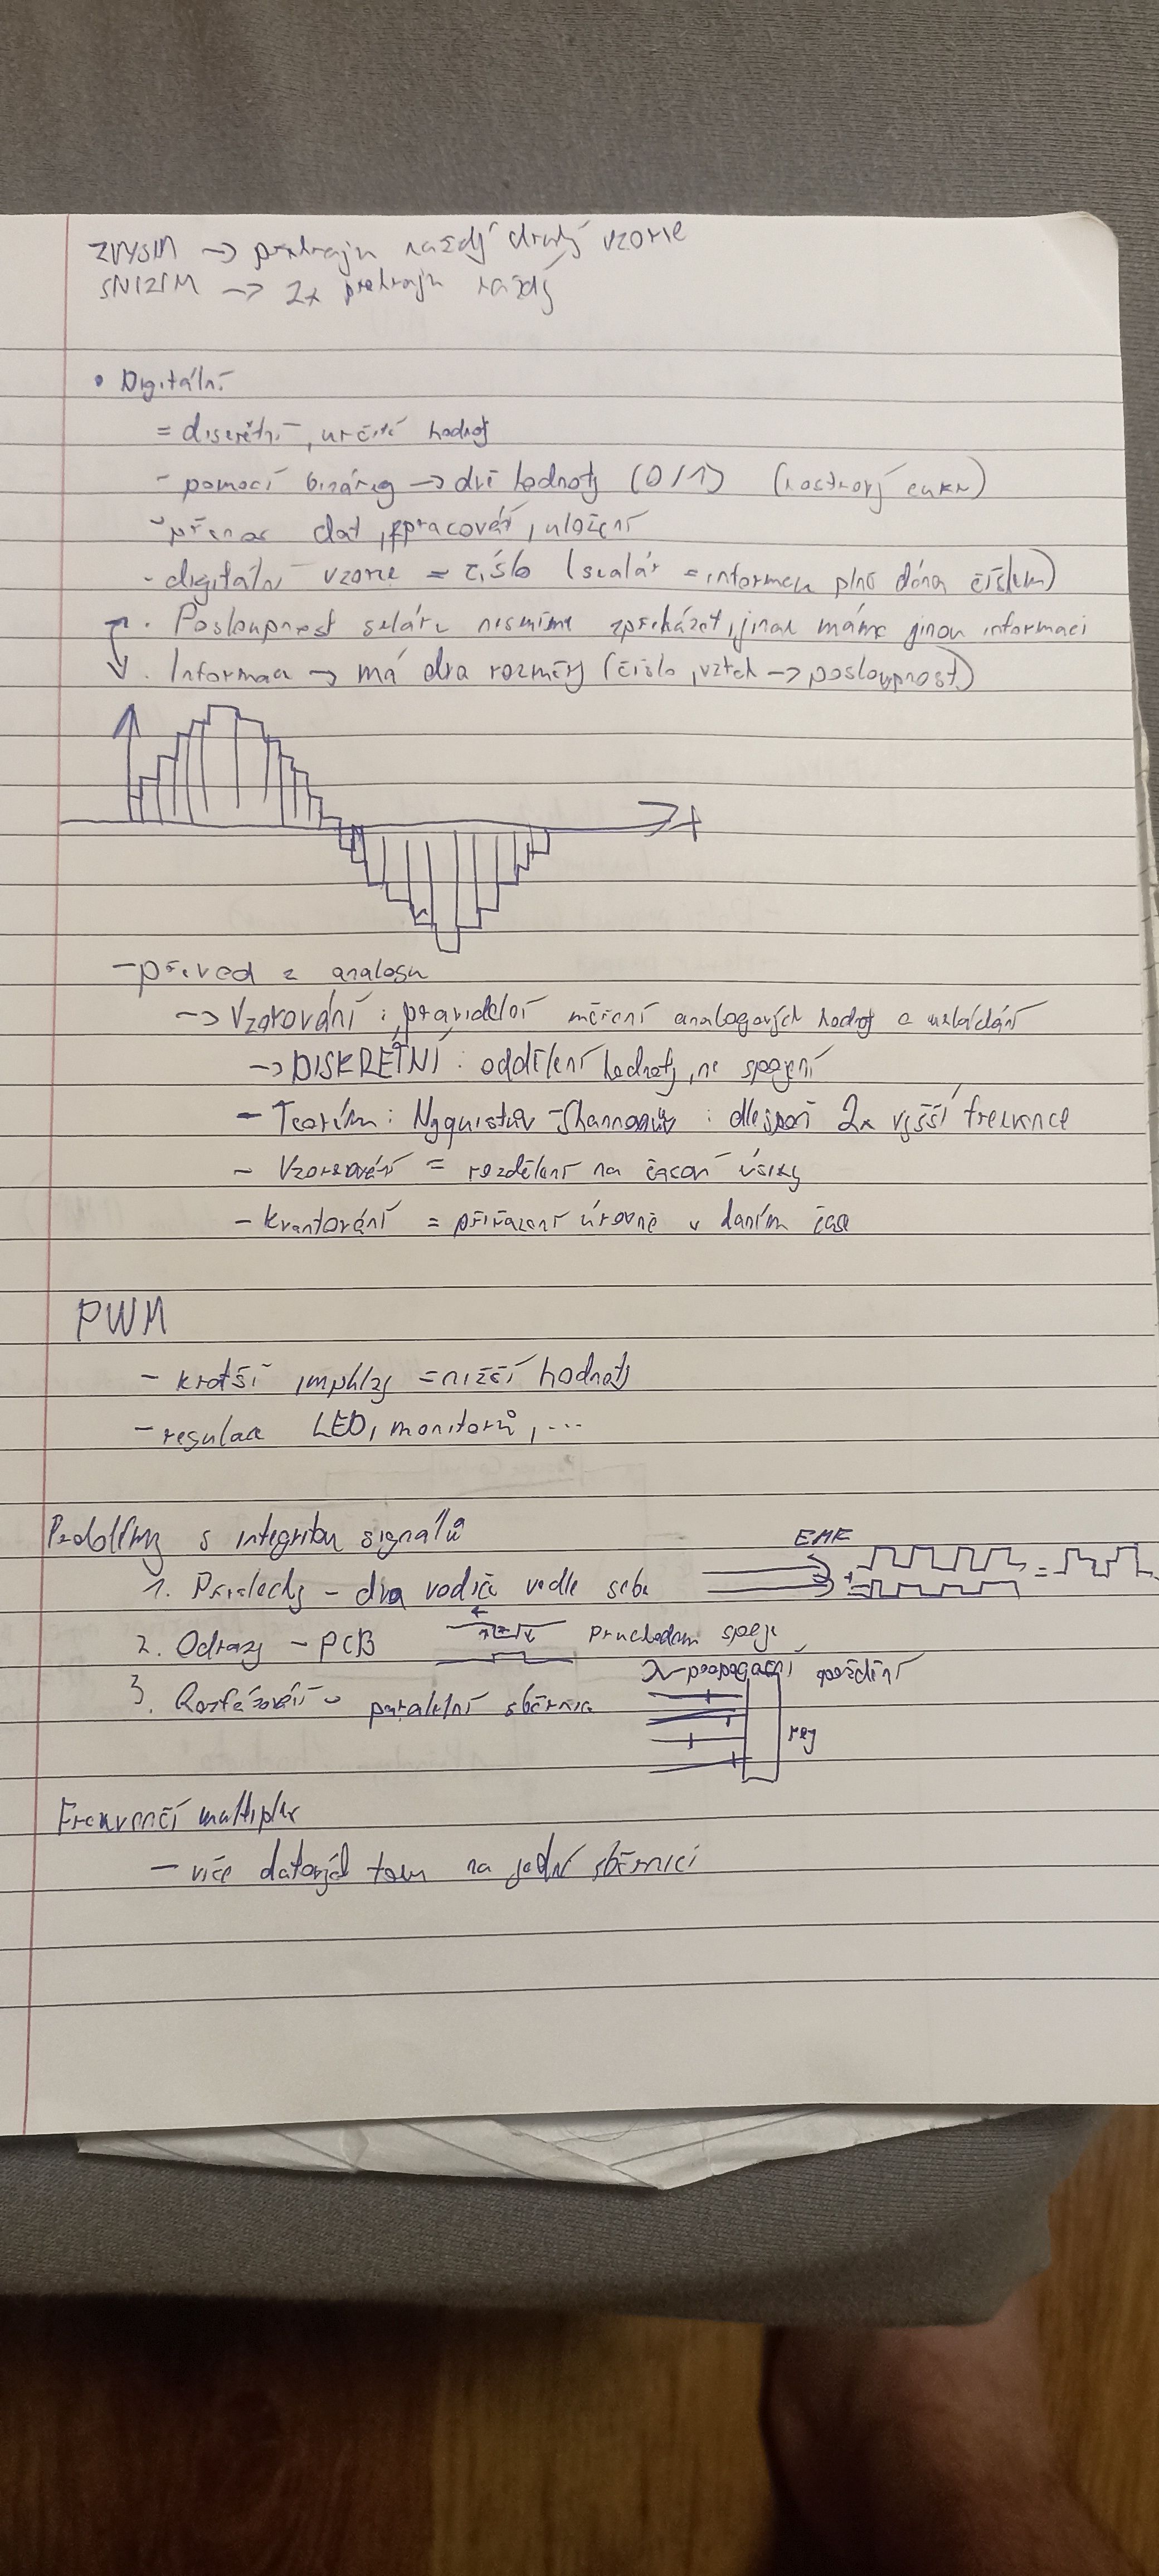 ZVÝŠÍM -> přehraju každý druhý vzorek
SNÍŽÍM -> 2x přehraju každý
• Digitální
= diskrétní, určité hodnoty
- pomocí binárky -> dvě hodnoty (0/1) (kostkový cukr)
- přenos dat, zpracování, uložení
- digitální vzorek = číslo (skalár = informace plně dána číslem)
• Posloupnost skaláru nesmíme zpřeházet, jinak máme jinou informaci
• Informace -> má dva rozměry (číslo, vztah -> posloupnost)
t
- převod z analogu
-> Vzorkování : pravidelné měření analogových hodnot a ukládání
-> DISKRÉTNÍ : oddělení hodnoty, ne spojení
- Teorém : Nyquistův - Shannonův : alespoň 2x vyšší frekvence
- Vzorkování = rozdělení na časové úseky
- kvantování = přiřazení úrovně v daném čase
PWM
- kratší impulzy = nižší hodnoty
- regulace LED, monitorů, ...
Problémy s integritou signálů
EME
1. Přeslechy - dva vodiče vedle sebe + =
2. Odrazy - PCB průchodem spoje
-propagační zpoždění
3. Rozfázování - paralelní sběrnice
reg
Frekvenčí multiplex
- více datových toků na jedné sběrnici